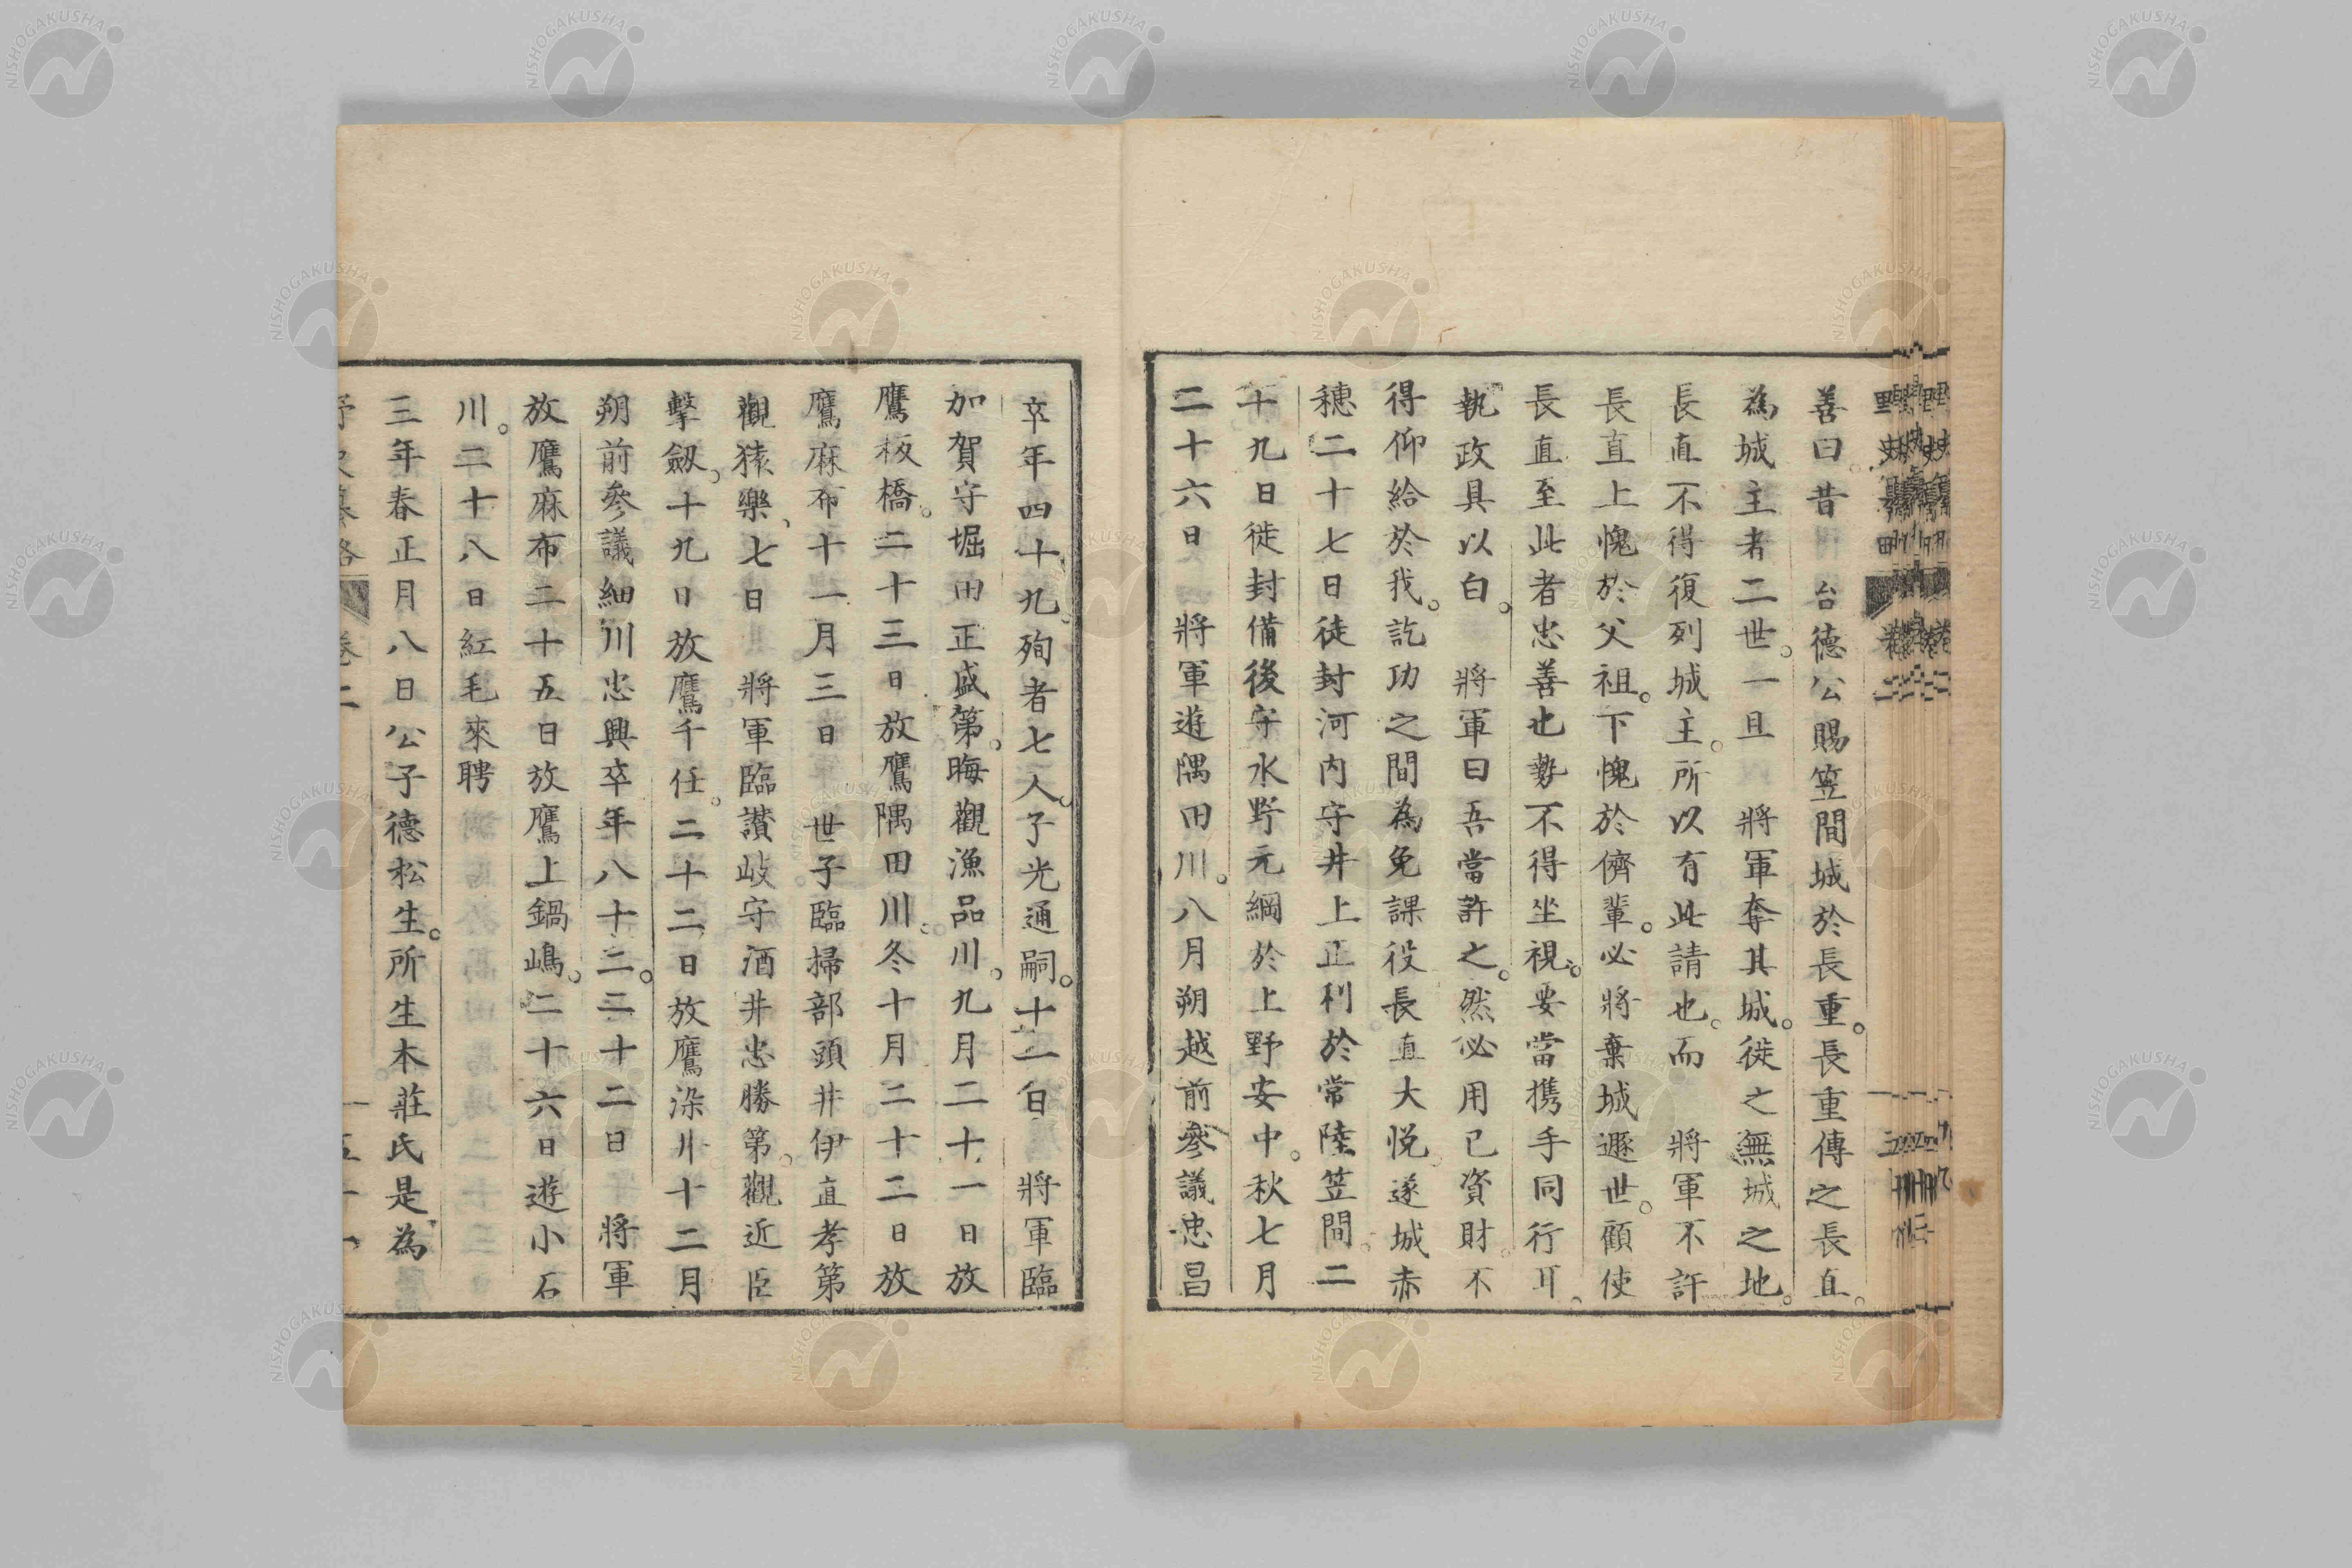 善曰。昔 台德公賜笠間城於長重。長重傳之長直。
為城主者二世。一旦 將軍奪其城。徙之無城之地。
長直不得復列城主。所以有此請也。而 將軍不許
長直上愧於父祖。下愧於儕輩。必將棄城遯世。顧使
長直至此者忠善也勢不得坐視。要當携手同行耳。
執政具以白。 將軍曰吾當許之。然必用已資財。不
得仰給於我。訖功之間為免課役長直大悅遂城赤
穗二十七日徒封河内守井上正利於常陸笠間。二
十九日徙封備後守水野元綱於上野安中。秋七月
二十六日 將軍遊隅田川。八月朔越前參議忠昌
卒年四十九。殉者七人。子光通嗣。十一日 將軍臨
加賀守堀田正盛第。晦觀漁品川。九月二十一日放
鷹板橋。二十三日放鷹隅田川。冬十月二十二日放
鷹麻布十一月三日 世子臨掃部頭井伊直孝第
觀猿樂、七日 將軍臨讃岐守酒井忠勝第。觀近臣
擊劔。十九日放鷹千住。二十二日放鷹染井十二月
朔前參議細川忠興卒年八十二。二十二日 將軍
放鷹麻布二十五日放鷹上鍋嶋。二十六日遊小石
川。二十八日紅毛來聘
三年春正月八日公子德松生。所生本莊氏是為
卷二
NISHOGAKUSHA